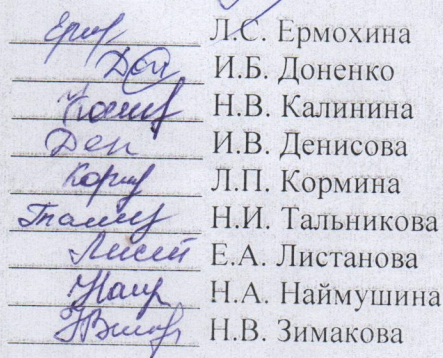 Л.С. Ермохина
И.Б. Доненко
Н.В. Калинина
Ден И.В. Денисова
Л.П. Кормина
Н.И. Тальникова
Е.А. Листанова
Н.А. Наймушина
Н.В. Зимакова